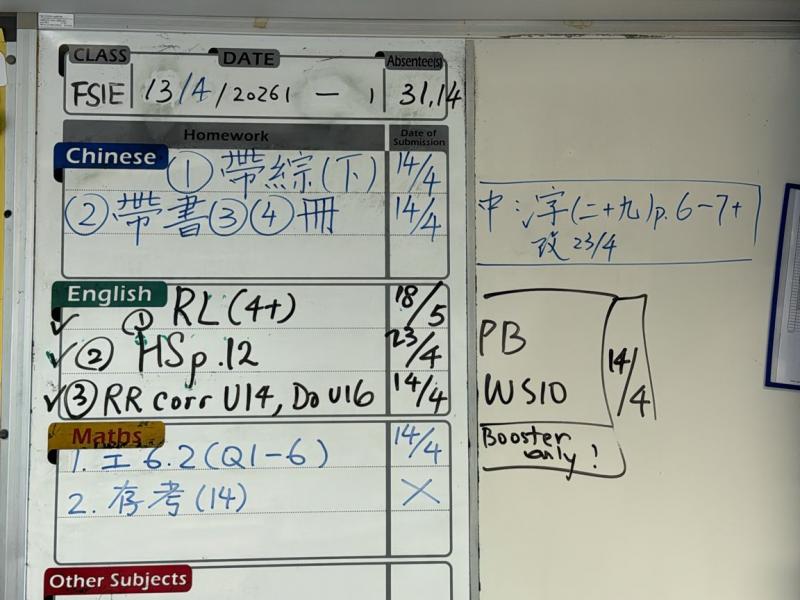 CLASS DATE Absentee(s)
FSIE 13/4/2026 | — | 31,14
Homework Date of Submission
Chinese
① 帶綜(下) 14/4
② 帶書③④冊 14/4
English
✓ ① RL (4+) 18/5
✓ ② HSp.12 23/4
✓ ③ RR corr U14, Do U16 14/4
Maths
1. 工 6.2 (Q1-6) 14/4
2. 存考 (14) ×
Other Subjects
中: 字(二十九)p.6-7+
改 23/4
PB
WS10 14/4
Booster only!